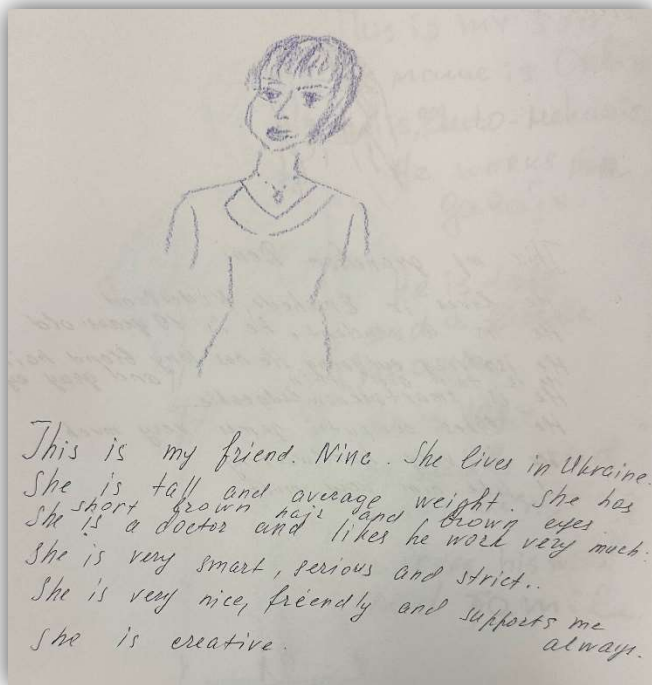 This is my friend. Nina. She lives in Ukraine.
She is tall and average weight. She has
short brown hair and brown eyes.
She is a doctor and likes he work very much.
She is very smart, serious and strict..
She is very nice, friendly and supports me
always.
She is creative.